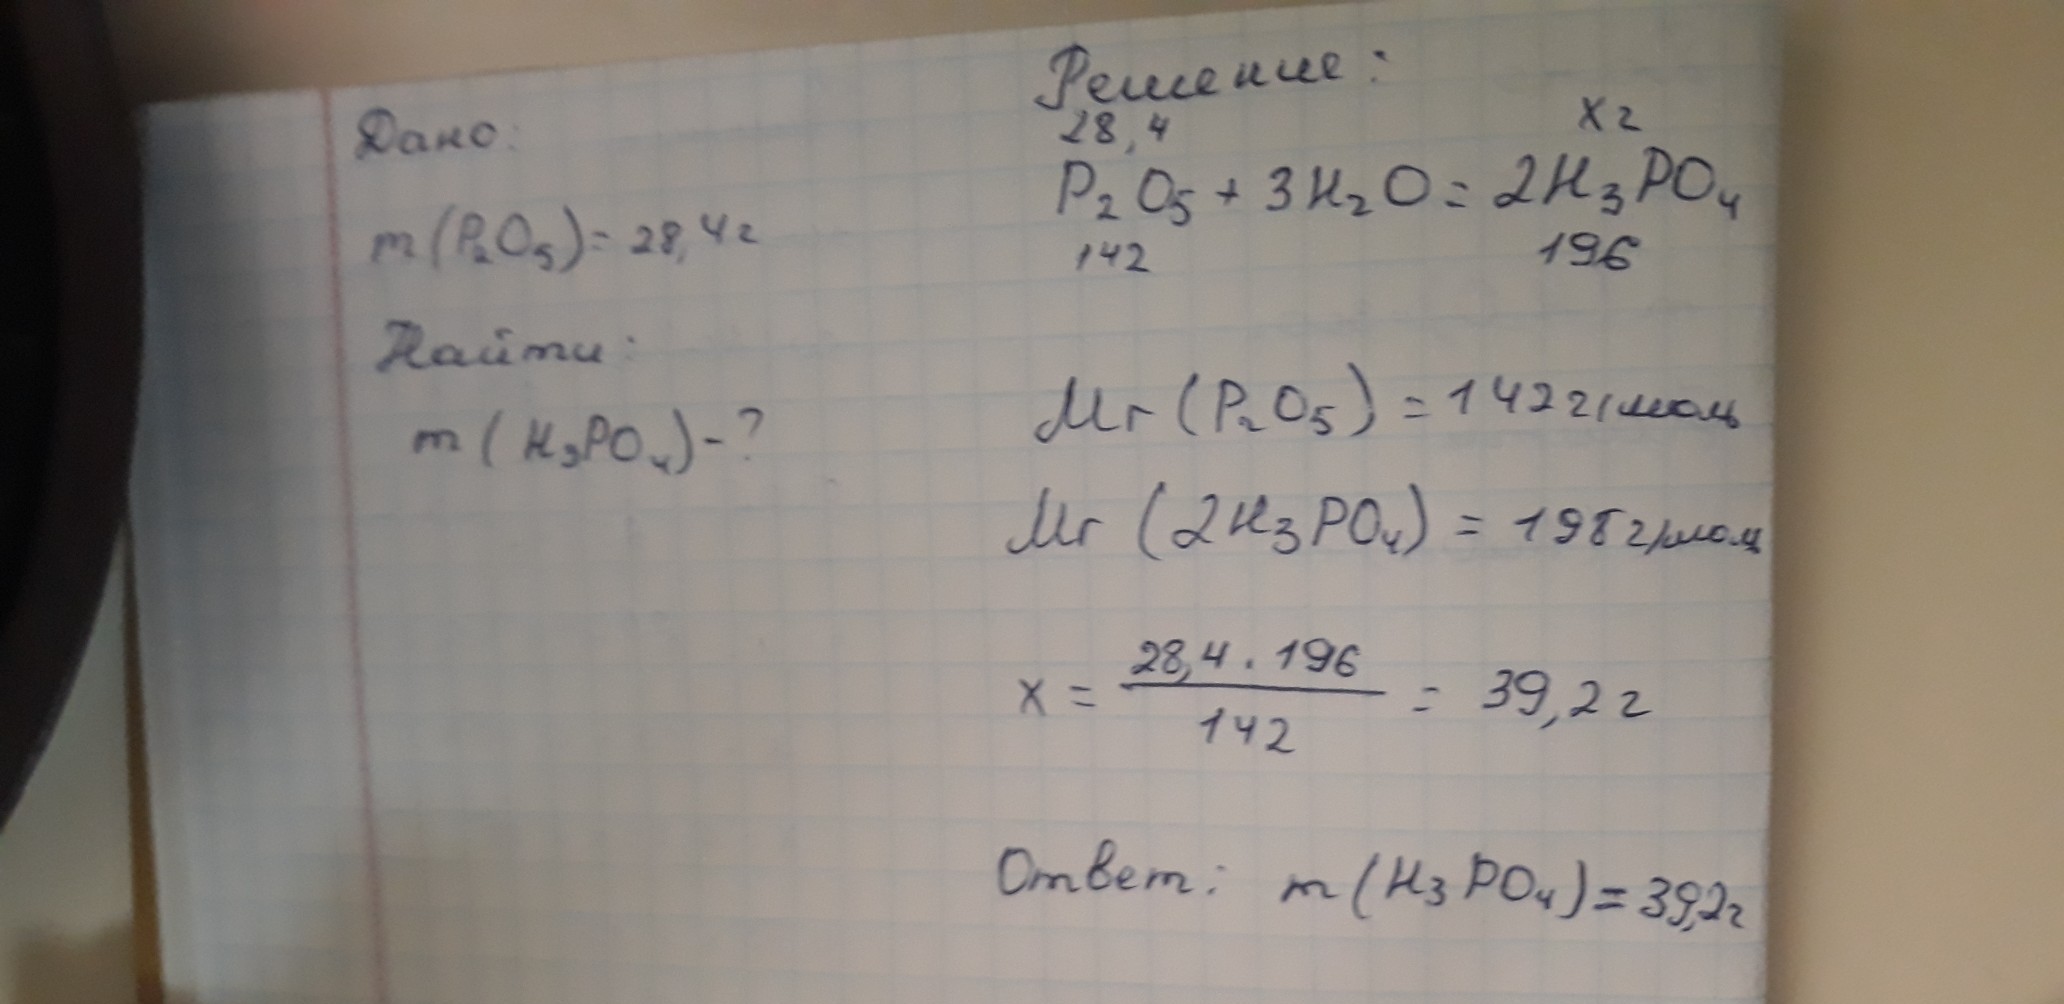 Дано:
m(P₂O₅) = 28,4г
Найти:
m(H₃PO₄) - ?
Решение:
28,4 xг
P₂O₅ + 3H₂O = 2H₃PO₄
142 196
Mr(P₂O₅) = 142 г/моль
Mr(2H₃PO₄) = 196 г/моль
x = 28,4 · 196 / 142 = 39,2г
Ответ: m(H₃PO₄) = 39,2г